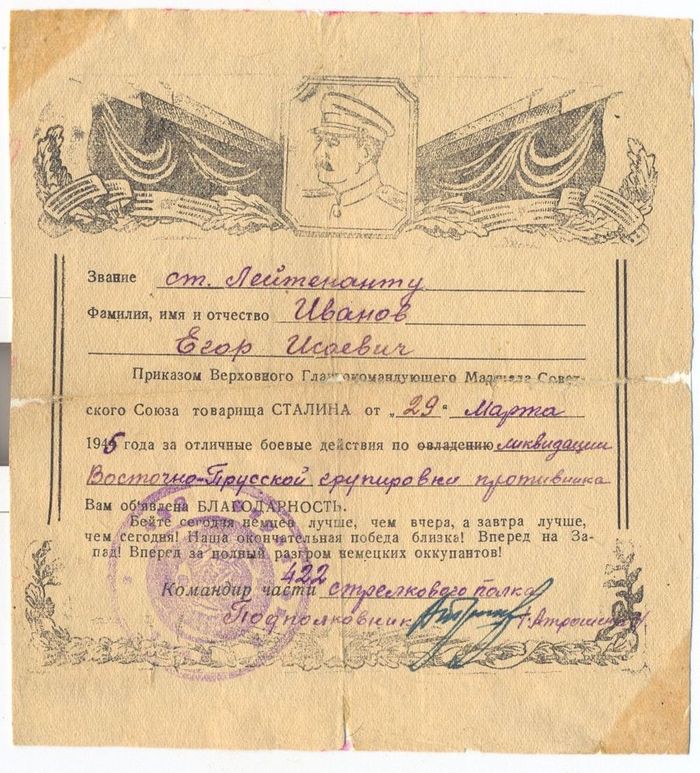 Звание ст. Лейтенанту
Фамилия, имя и отчество Иванов
Егор Исаевич
Приказом Верховного Главнокомандующего Маршала Совет-
ского Союза товарища СТАЛИНА от „29" Марта
1945 года за отличные боевые действия по овладению ликвидации
Восточно-Прусской групировки противника
Вам объявлена БЛАГОДАРНОСТЬ.
Бейте сегодня немцев лучше, чем вчера, а завтра лучше,
чем сегодня! Наша окончательная победа близка! Вперед на За-
пад! Вперед за полный разгром немецких оккупантов!
422
Командир части стрелкового полка
Подполковник